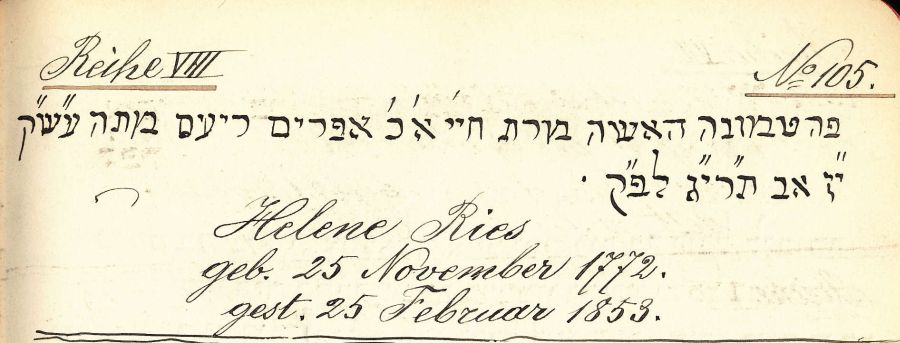 Reihe VIIII
No 105.
פה טמונה האשה מרת חיי' א'כ' אפרים ריעס מתה עש"ק
י"ז אב תרי"ג לפ"ק .
Helene Ries
geb. 25 November 1772.
gest. 25 Februar 1853.